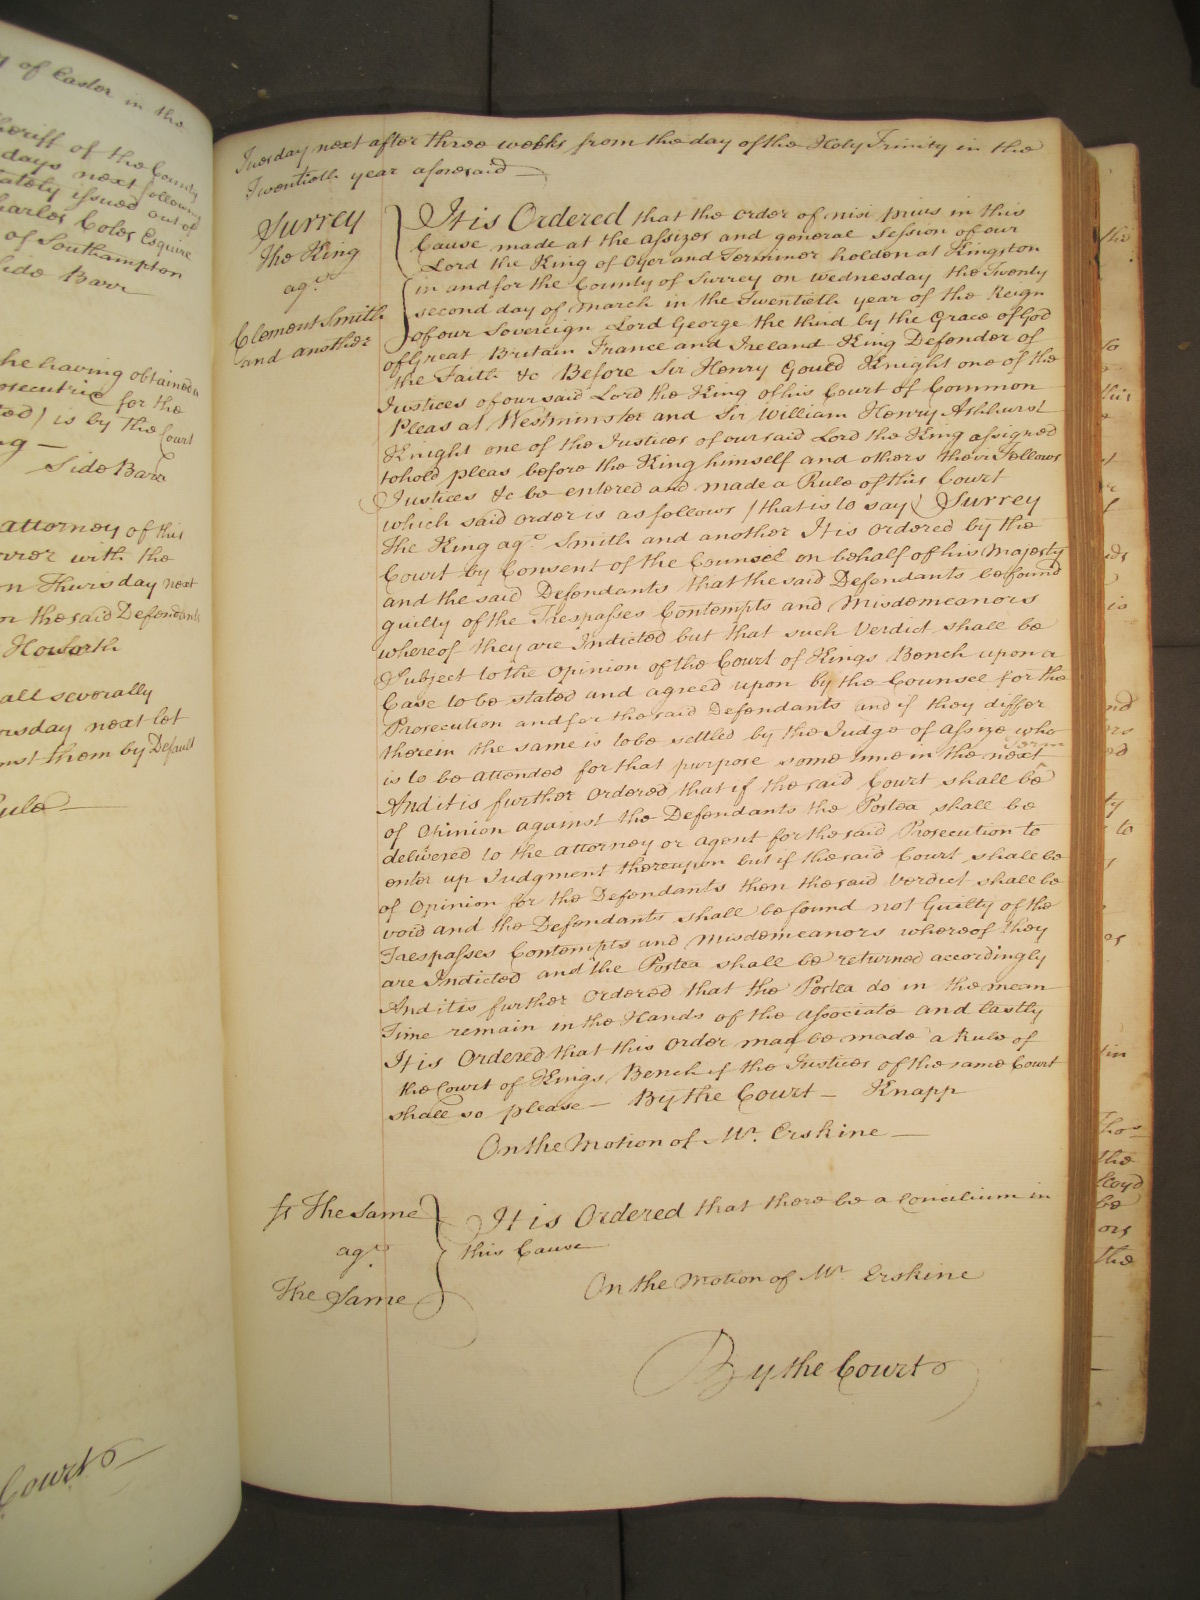 y of Easter in the
Sheriff of the County
days next following
ately issued out of
Charles Coles Esquire
of Southampton
Side Barr
he having obtained a
osecutrix for the
ed) is by the Court
Side Barr
attorney of this
over with the
on Thursday next
on the said Defendants
Howorth
all severally
ursday next let
inst them by Default
Rule
Court
Tuesday next after three weeks from the day of the Holy Trinity in the
Twentieth year aforesaid
Surrey
The King
agt
Clement Smith
and another
It is Ordered that the order of nisi prius in this
Cause made at the assizes and general Session of our
Lord the King of Oyer and Terminer holden at Kingston
in and for the County of Surrey on Wednesday the Twenty
second day of March in the Twentieth year of the Reign
of our Sovereign Lord George the third by the Grace of God
of Great Britain France and Ireland King Defender of
the Faith &c Before Sir Henry Gould Knight one of the
Justices of our said Lord the King of his Court of Common
Pleas at Westminster and Sir William Henry Ashhurst
Knight one of the Justices of our said Lord the King assigned
to hold pleas before the King himself and others their Fellows
Justices &c be entered and made a Rule of this Court
which said order is as follows (that is to say) Surrey
The King agt Smith and another It is ordered by the
Court by Consent of the Counsel on behalf of his Majesty
and the said Defendants that the said Defendants be found
guilty of the Trespasses Contempts and Misdemeanors
whereof they are Indicted but that such Verdict shall be
Subject to the Opinion of the Court of Kings Bench upon a
Case to be stated and agreed upon by the Counsel for the
Prosecution and for the said Defendants and if they differ
therein the same is to be settled by the Judge of Assize who
is to be attended for that purpose some time in the next Term
And it is further Ordered that if the said Court shall be
of Opinion against the Defendants the Postea shall be
delivered to the attorney or agent for the said Prosecution to
enter up Judgment thereupon but if the said Court shall be
of Opinion for the Defendants then the said Verdict shall be
void and the Defendants shall be found not Guilty of the
Trespasses Contempts and Misdemeanors whereof they
are Indicted and the Postea shall be returned accordingly
And it is further Ordered that the Postea do in the mean
Time remain in the Hands of the Associate and lastly
It is Ordered that this Order may be made a Rule of
the Court of Kings Bench if the Justices of the same Court
shall so please — By the Court — Knapp
On the Motion of Mr. Erskine
The Same
agt
The Same
It is Ordered that there be a Concilium in
this Cause
On the Motion of Mr Erskine
By the Court